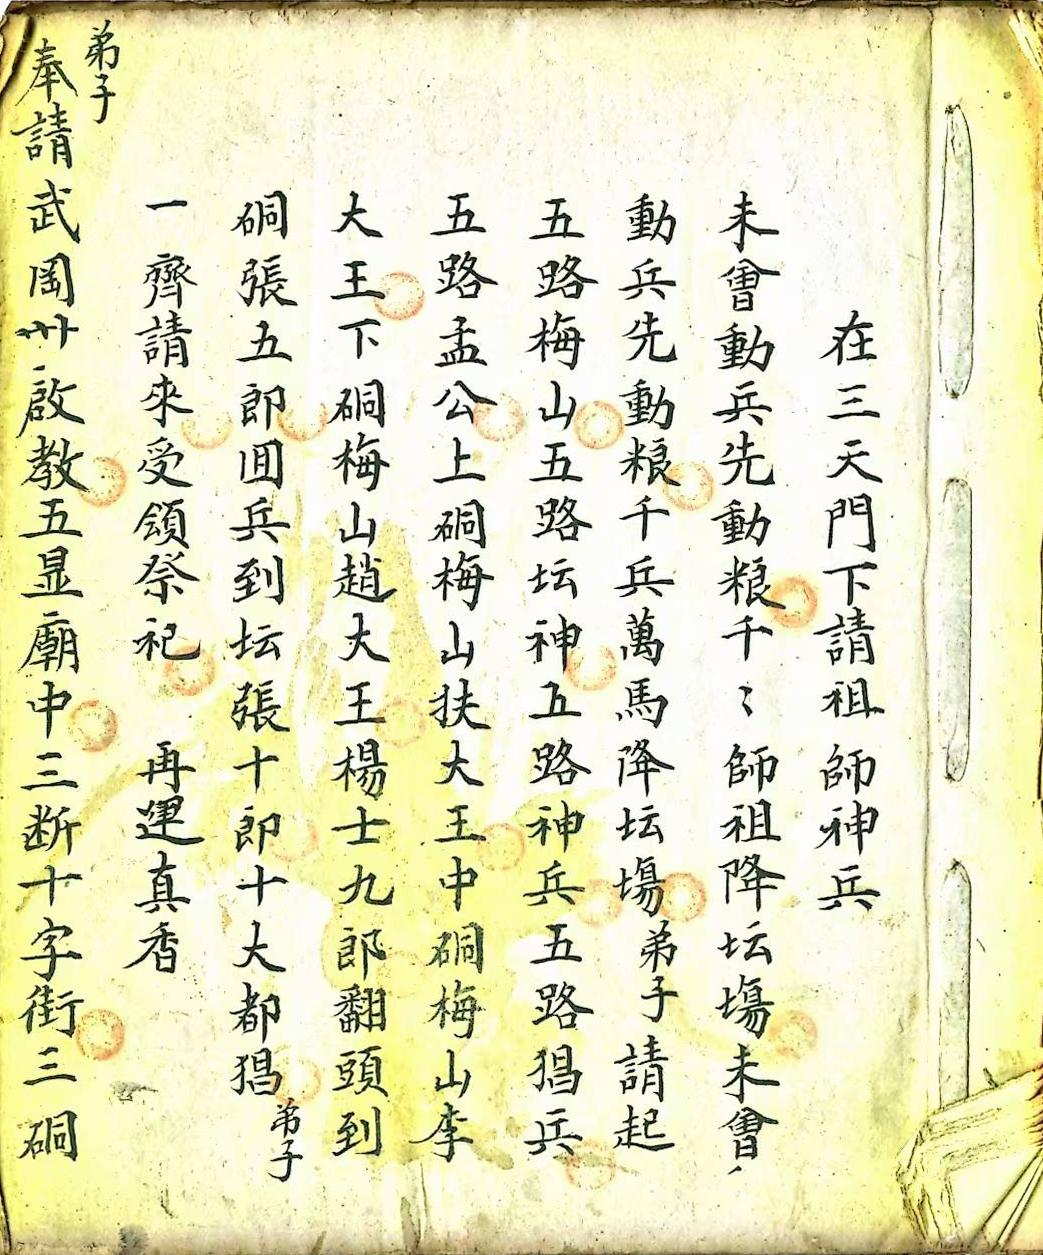 在三天門下請祖師神兵
未曾動兵先動粮千〻師祖降坛塲未曾
動兵先動粮千兵萬馬降坛塲弟子請起
五路梅山五路坛神五路神兵五路猖兵
五路孟公上硐梅山扶大王中硐梅山李
大王下硐梅山趙大王楊士九郎翻頭到
硐張五郎囬兵到坛張十郎十大都猖弟子
一齊請來受領祭祀 再運真香
弟子
奉請武岡卅啟教五显廟中三断十字街三硐